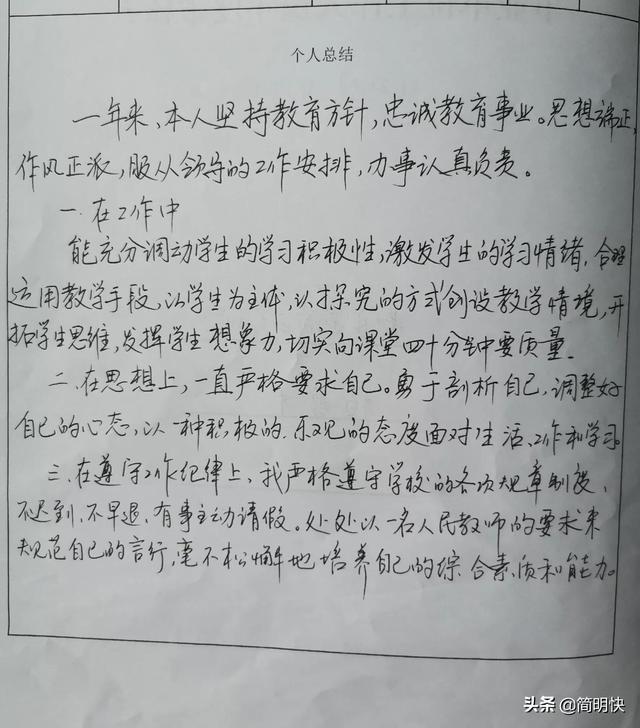 个人总结
一年来、本人坚持教育方针,忠诚教育事业。思想端正,
作风正派,服从领导的工作安排,办事认真负责。
一.在工作中
能充分调动学生的学习积极性,激发学生的学习情绪,合理
运用教学手段,以学生为主体,以探究的方式创设教学情境,开
拓学生思维,发挥学生想象力,切实向课堂四十分钟要质量.
二.在思想上,一直严格要求自己。勇于剖析自己,调整好
自己的心态,以一种积极的.乐观的态度面对生活、工作和学习.
三.在遵守工作纪律上,我严格遵守学校的各项规章制度、
不迟到、不早退、有事主动请假。处处以一名人民教师的要求来
规范自己的言行,毫不松懈地培养自己的综合素质和能力。
头条 @简明快